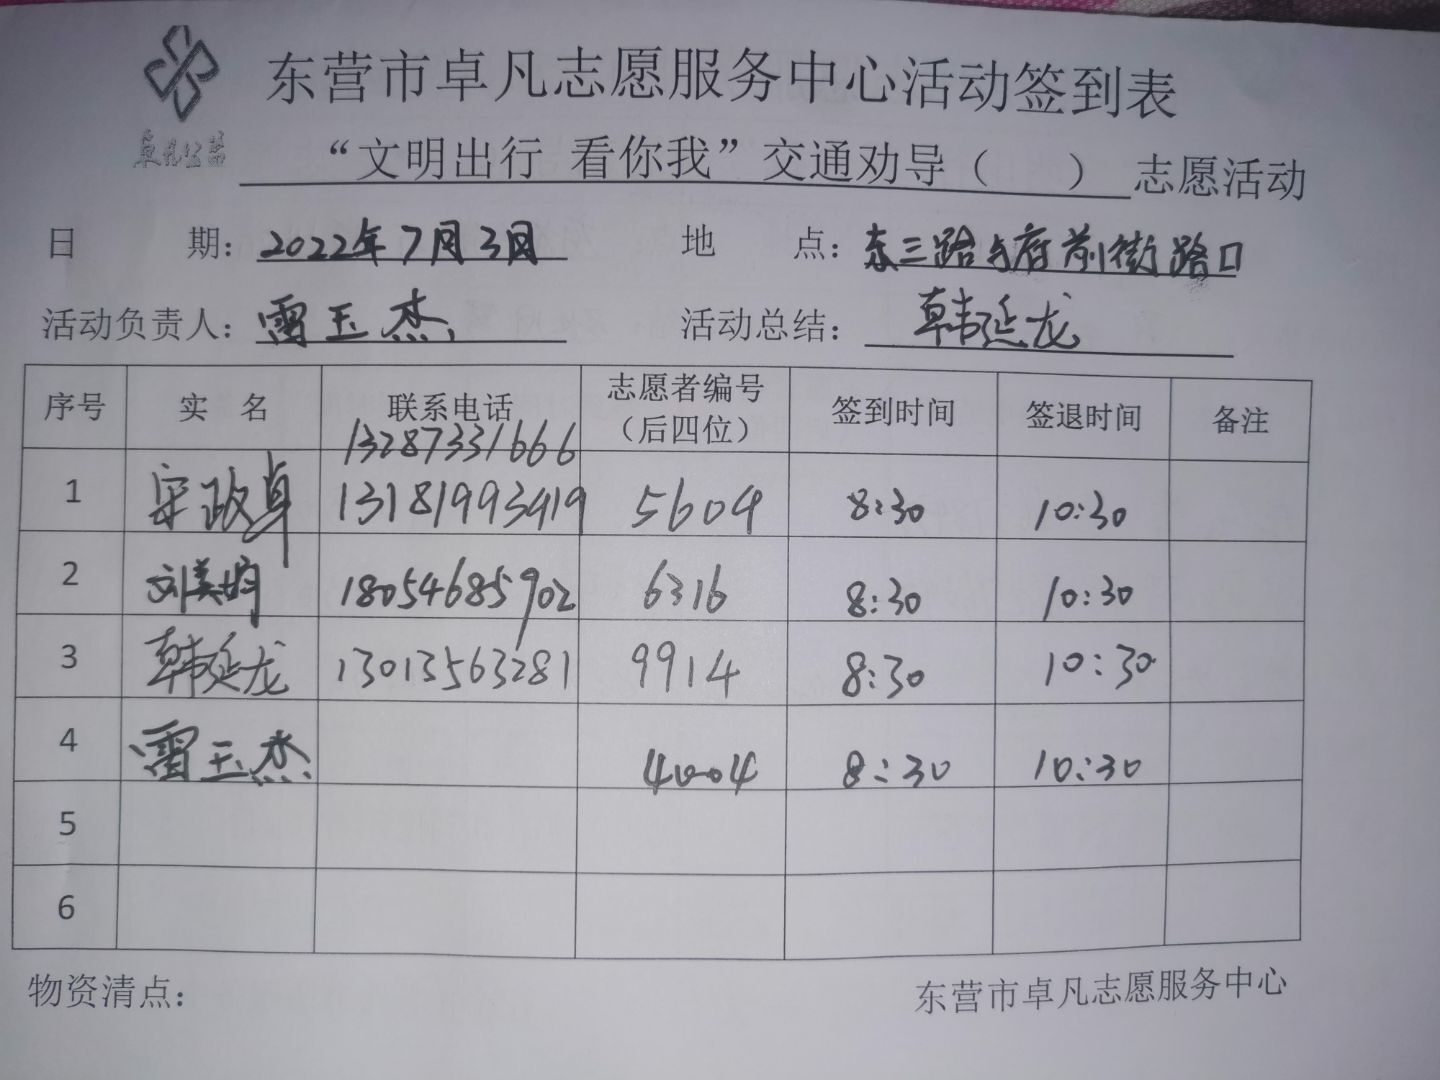 东营市卓凡志愿服务中心活动签到表
卓凡公益
“文明出行 看你我”交通劝导（ ）志愿活动
日 期：2022年7月3日 地 点：东三路与府前街路口
活动负责人：雷玉杰 活动总结：韩延龙
序号 实 名 联系电话 志愿者编号（后四位） 签到时间 签退时间 备注
13287331666
1 宋政卓 13181993419 5604 8:30 10:30
2 刘美 18054685902 6316 8:30 10:30
3 韩延龙 13013563281 9914 8:30 10:30
4 雷玉杰 4004 8:30 10:30
5
6
物资清点： 东营市卓凡志愿服务中心